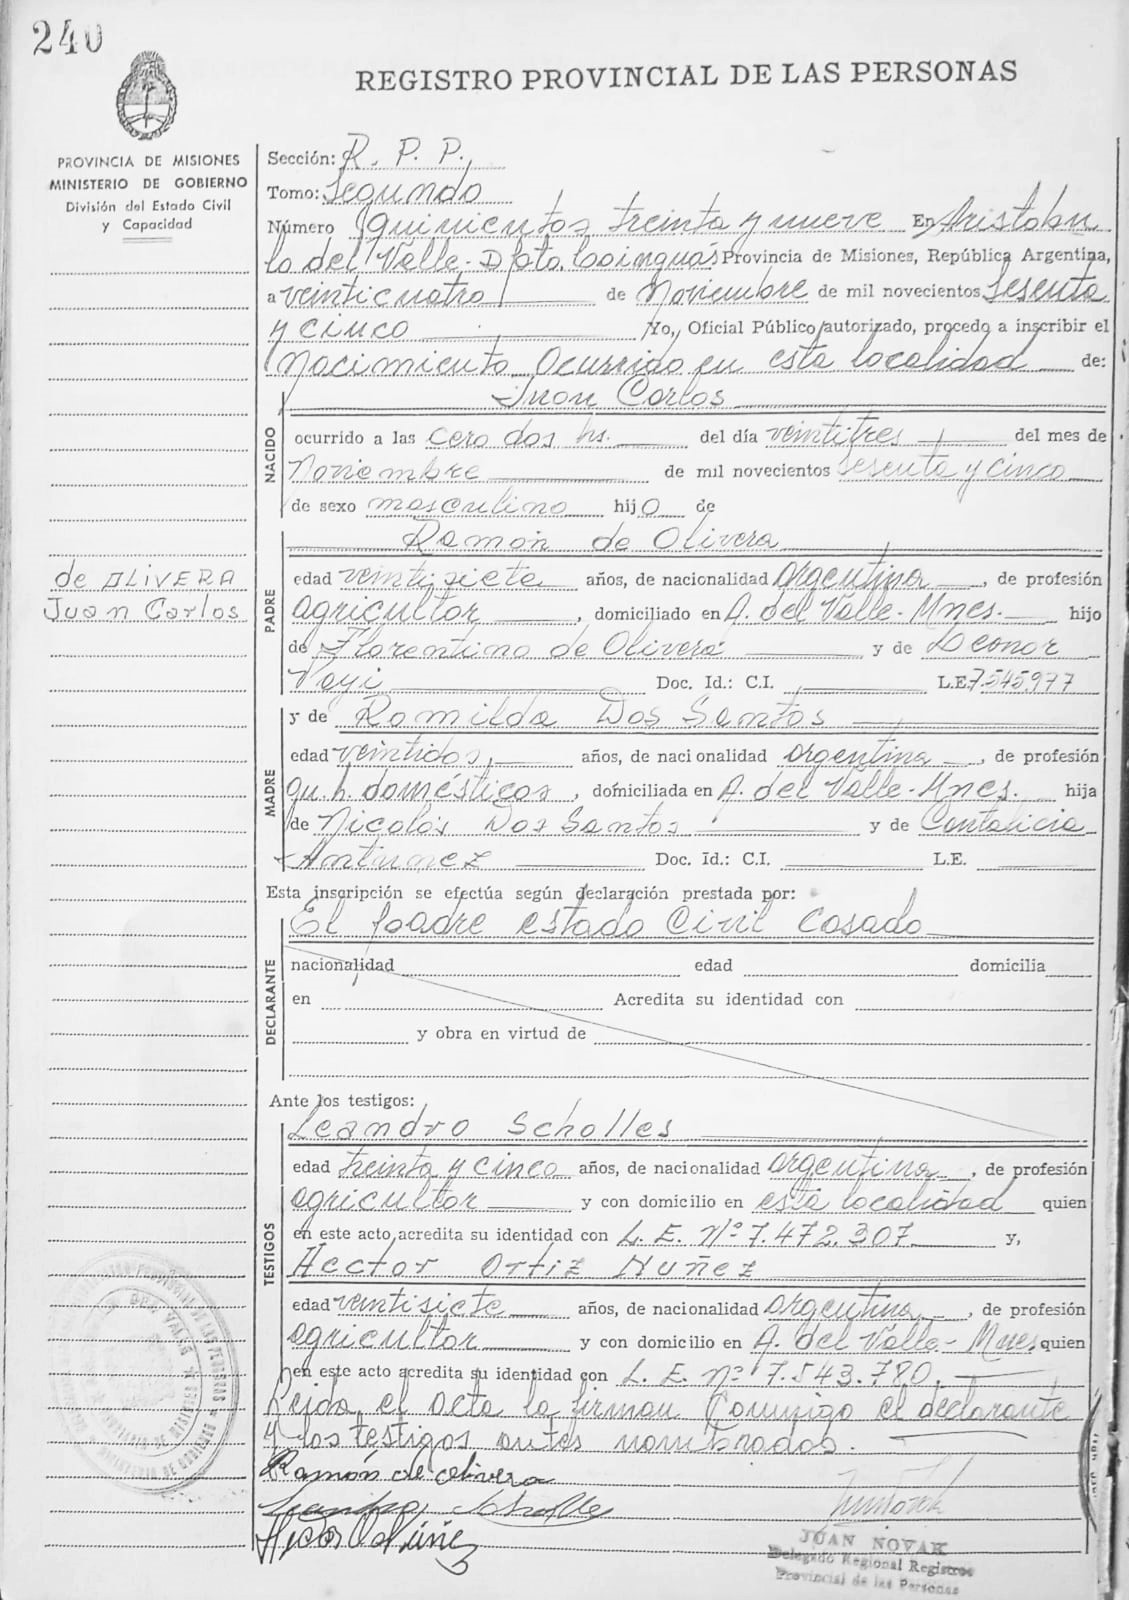 240
REGISTRO PROVINCIAL DE LAS PERSONAS
PROVINCIA DE MISIONES
MINISTERIO DE GOBIERNO
División del Estado Civil
y Capacidad
Sección: R. P. P.
Tomo: Segundo
Número quinientos treinta y nueve En Aristobu
lo del Valle - Dpto. Cainguás Provincia de Misiones, República Argentina,
a veinticuatro de Noviembre de mil novecientos Sesenta
y cinco Yo, Oficial Público autorizado, procedo a inscribir el
Nacimiento Ocurrido en esta localidad de:
Juan Carlos
NACIDO
ocurrido a las cero dos hs. del día veintitres del mes de
Noviembre de mil novecientos sesenta y cinco
de sexo masculino hijo de
Ramón de Olivera
de OLIVERA
Juan Carlos
PADRE
edad veintisiete años, de nacionalidad argentina, de profesión
agricultor, domiciliado en A. del Valle - Mnes. hijo
de Florentino de Olivera y de Leonor
Doc. Id.: C.I. L.E. 7.545.977
y de Romilda Dos Santos
MADRE
edad veintidos, años, de nacionalidad argentina, de profesión
qu. h. domésticos, domiciliada en A. del Valle - Mnes. hija
de Nicolás Dos Santos y de Cantalicia
Antunez Doc. Id.: C.I. L.E.
Esta inscripción se efectúa según declaración prestada por:
El padre estado Civil Casado
DECLARANTE
nacionalidad edad domicilia
en Acredita su identidad con
y obra en virtud de
Ante los testigos:
Leandro Scholles
TESTIGOS
edad treinta y cinco años, de nacionalidad argentina, de profesión
agricultor y con domicilio en esta localidad quien
en este acto acredita su identidad con L. E. Nº 7.472.307 y,
Hector Ortiz Nuñez
edad veintisiete años, de nacionalidad argentina, de profesión
agricultor y con domicilio en A. del Valle - Mnes. quien
en este acto acredita su identidad con L. E. nº 7.543.780.
Leida el acta la firman Conmigo el declarante
y los testigos antes nombrados.
Ramón de olivera
JUAN NOVAK
Delegado Regional Registros
Provincial de las Personas